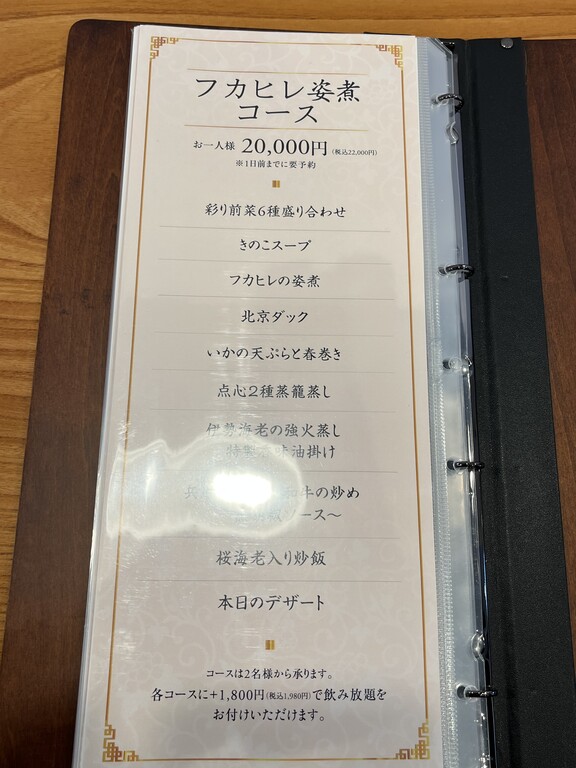 フカヒレ姿煮
コース
お一人様 20,000円 (税込22,000円)
※1日前までに要予約
彩り前菜6種盛り合わせ
きのこスープ
フカヒレの姿煮
北京ダック
いかの天ぷらと春巻き
点心2種蒸籠蒸し
伊勢海老の強火蒸し
油掛け
和牛の炒め
ソース～
桜海老入り炒飯
本日のデザート
コースは2名様から承ります。
各コースに+1,800円(税込1,980円)で飲み放題を
お付けいただけます。